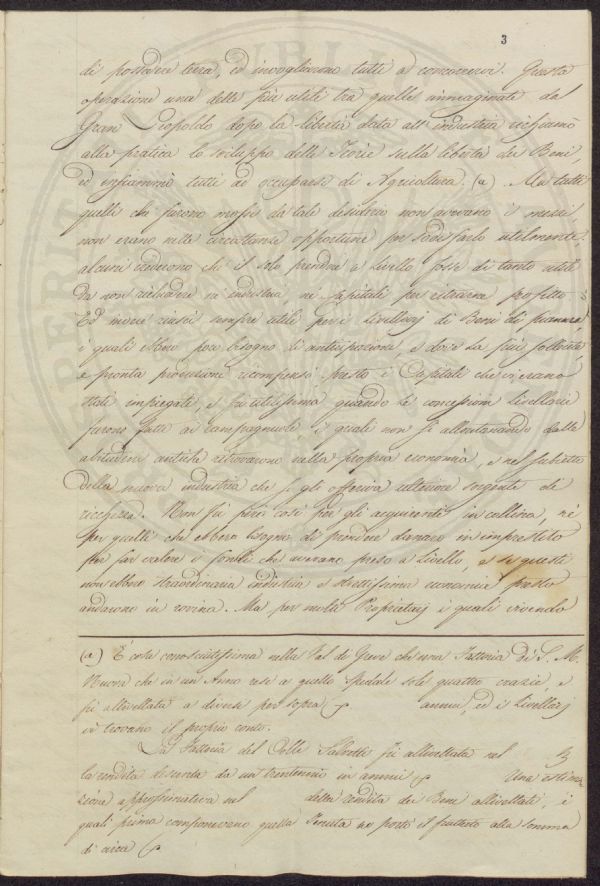 3
di possedere terra, ed invogliarono tutti a concorrervi. Questa
operazione una delle più utili tra quelle immaginate dal
Gran Leopoldo dopo la libertà data all'industria richiamò
alla pratica lo sviluppo delle Teorie sulla libertà dei Beni,
ed infiammò tutti ad occuparsi di Agricoltura. (a) Ma tutti
quelli che furono mossi da tale desiderio non avevano i mezzi,
non erano nelle circostanze opportune per sodisfarlo utilmente.
alcuni crederono che il solo prendere a Livello fosse di tanto utile
da non richiedere nè industria, nè Capitali per ritrarne profitto.
Ed invero riescì sempre utile per i Livellarj di Beni di pianura
i quali ebbero poco bisogno di anticipazioni, e dove la più sollecita,
e pronta produzione ricompensò presto i Capitali che vi erano
stati impiegati, e fu utilissima quando le concessioni livellarie
furono fatte ai Campagnuoli i quali non si allontanando dalle
abitudini antiche ritrovarono nella propria economia, e nel subietto
della nuova industria che se gli offeriva ulteriore sorgente di
ricchezza. Non fù però così per gli acquirenti in collina, nè
per quelli che ebbero bisogno di prendere danaro in imprestito
per far valere i fondi che avevano preso a Livello, e se questi
non ebbero straordinaria industria e strettissima economia presto
andarono in rovina. Ma per molti Proprietarj i quali vivendo
(a) È cosa conosciutissima nella Val di Greve che una Fattoria di S. M.
Nuova che in un Anno rese a quello Spedale sole quattro crazie, e
fù allivellata a diversi per sopra annui, ed i Livellarj
vi trovano il proprio conto.
La Fattoria del Colle Salvetti fù allivellata nel
la rendita di scritta da un trentennio in annui Una estima
zione approssimativa nel della rendita dei Beni allivellati, i
quali prima componevano quella Tenuta ne portò il fruttato alla somma
di circa